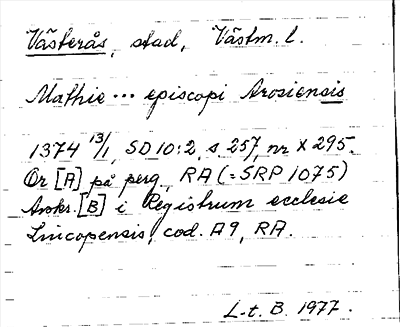 Västerås, stad, Västm. l.
Mathie ... episcopi Arosiensis
1374 13/1, SD 10:2, s. 257, nr X 295.
Or [A] på perg, RA (=SRP 1075)
Avskr. [B] i Registrum ecclesie
Lincopensis, cod. A9, RA.
L.t. B. 1977.